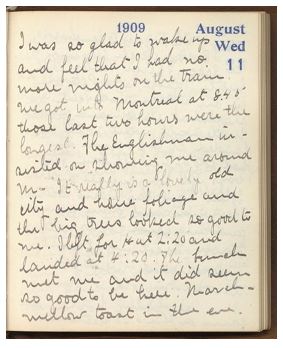 1909 August
Wed
11
I was so glad to wake up
and feel that I had no
more nights on the train.
we got into Montreal at 8.45
those last two hours were the
longest. The Englishman in-
sisted on showing me around
M- It really is a lovely old
city and have foliage and
the big trees looked so good to
me. I left for H at 2.20 and
landed at 4.20. The bunch
met me and it did seem
so good to be here. Marsh-
mellow toast in the eve.